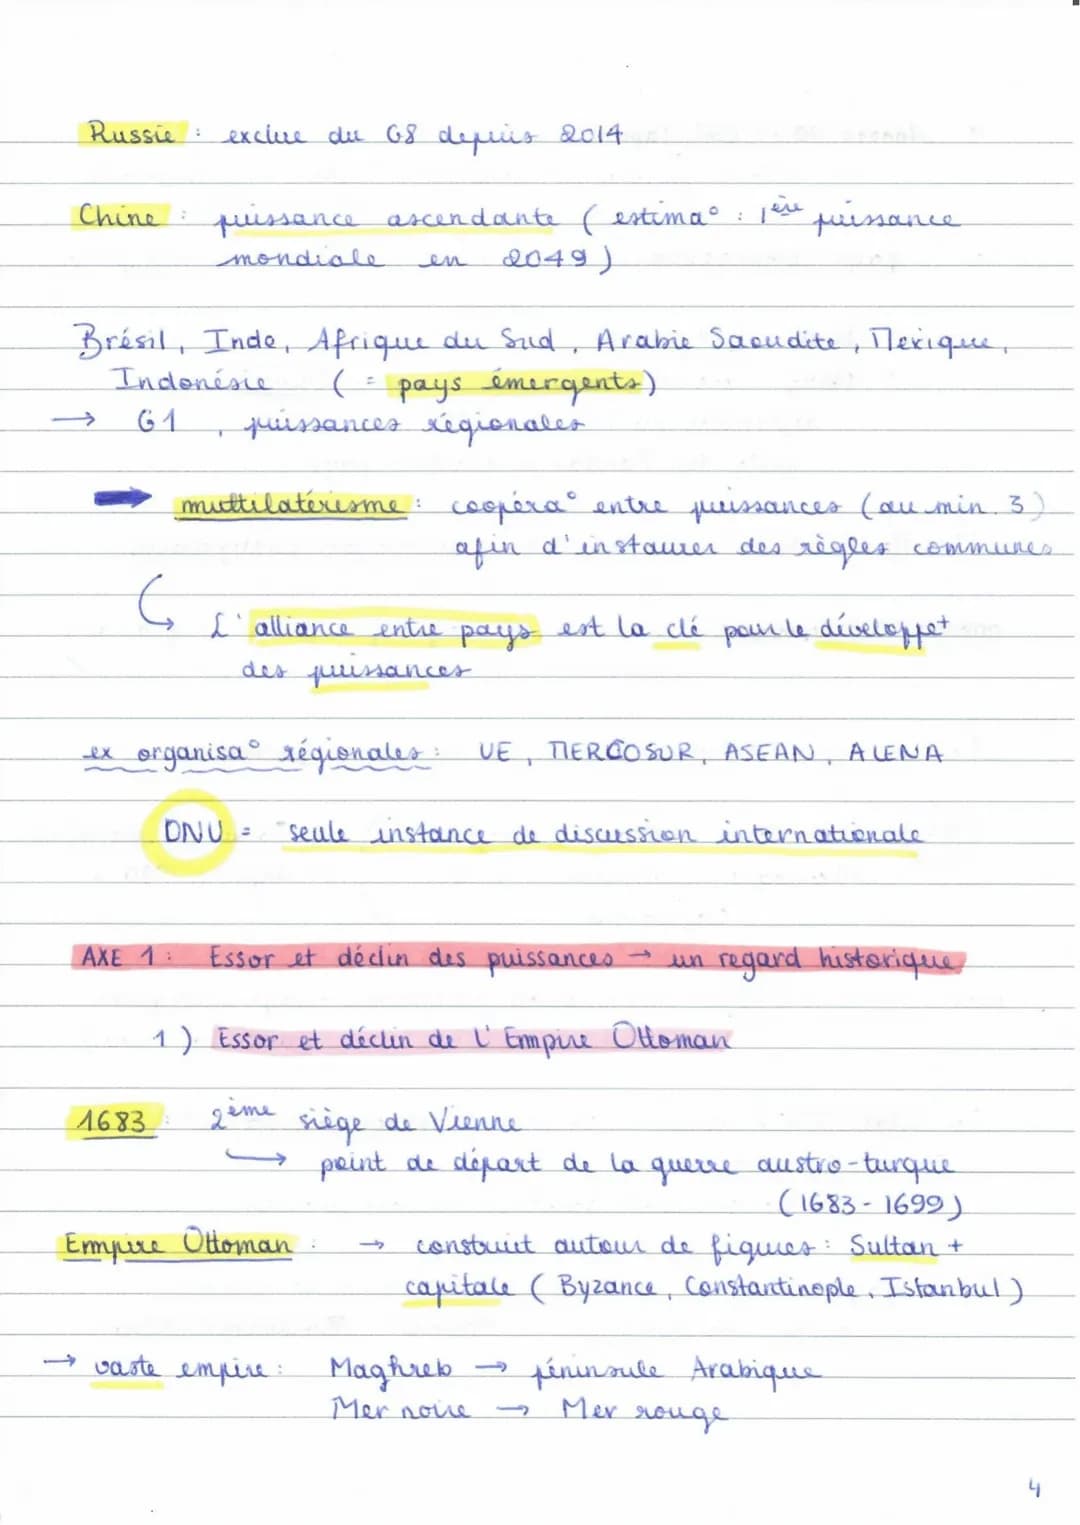 Russie : exclue du G8 depuis 2014
Chine : puissance ascendante ( estima° : 1ère puissance
mondiale en 2049 )
Brésil, Inde, Afrique du Sud, Arabie Saoudite, Mexique,
Indonésie ( = pays émergents )
→ G1 , puissances régionales
➡ multilatérisme : coopéra° entre puissances (au min. 3)
afin d'instaurer des règles communes
↳ L'alliance entre pays est la clé pour le développet
des puissances
ex organisa° régionales : UE, MERCOSUR, ASEAN, ALENA
ONU = seule instance de discussion internationale
AXE 1 : Essor et déclin des puissances → un regard historique
1 ) Essor et déclin de l'Empire Ottoman
1683 : 2ème siège de Vienne
→ point de départ de la guerre austro-turque
( 1683 - 1699 )
Empire Ottoman : → construit autour de figures : Sultan +
capitale ( Byzance, Constantinople, Istanbul )
→ vaste empire : Maghreb → péninsule Arabique
Mer noire → Mer rouge
4